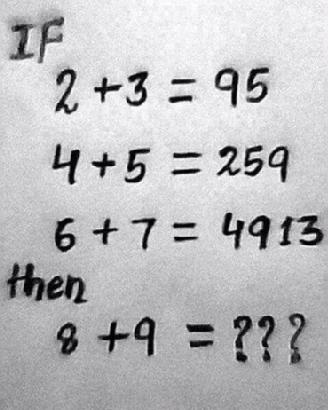 IF
2 + 3 = 95
4 + 5 = 259
6 + 7 = 4913
then
8 + 9 = ???